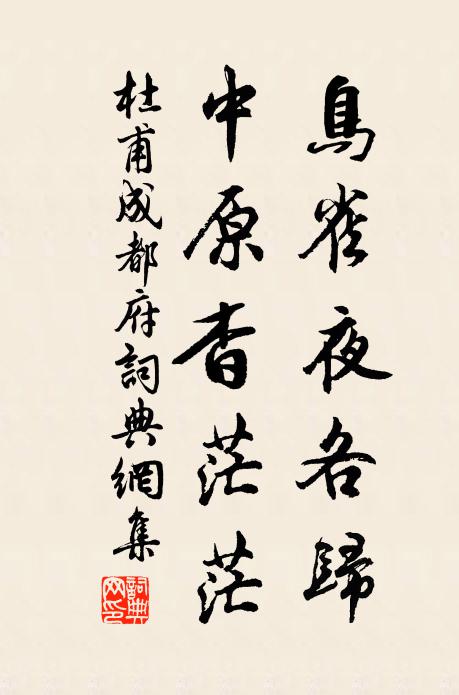 鳥雀夜各歸
中原杳茫茫
杜甫成都府詞典網集
詞典